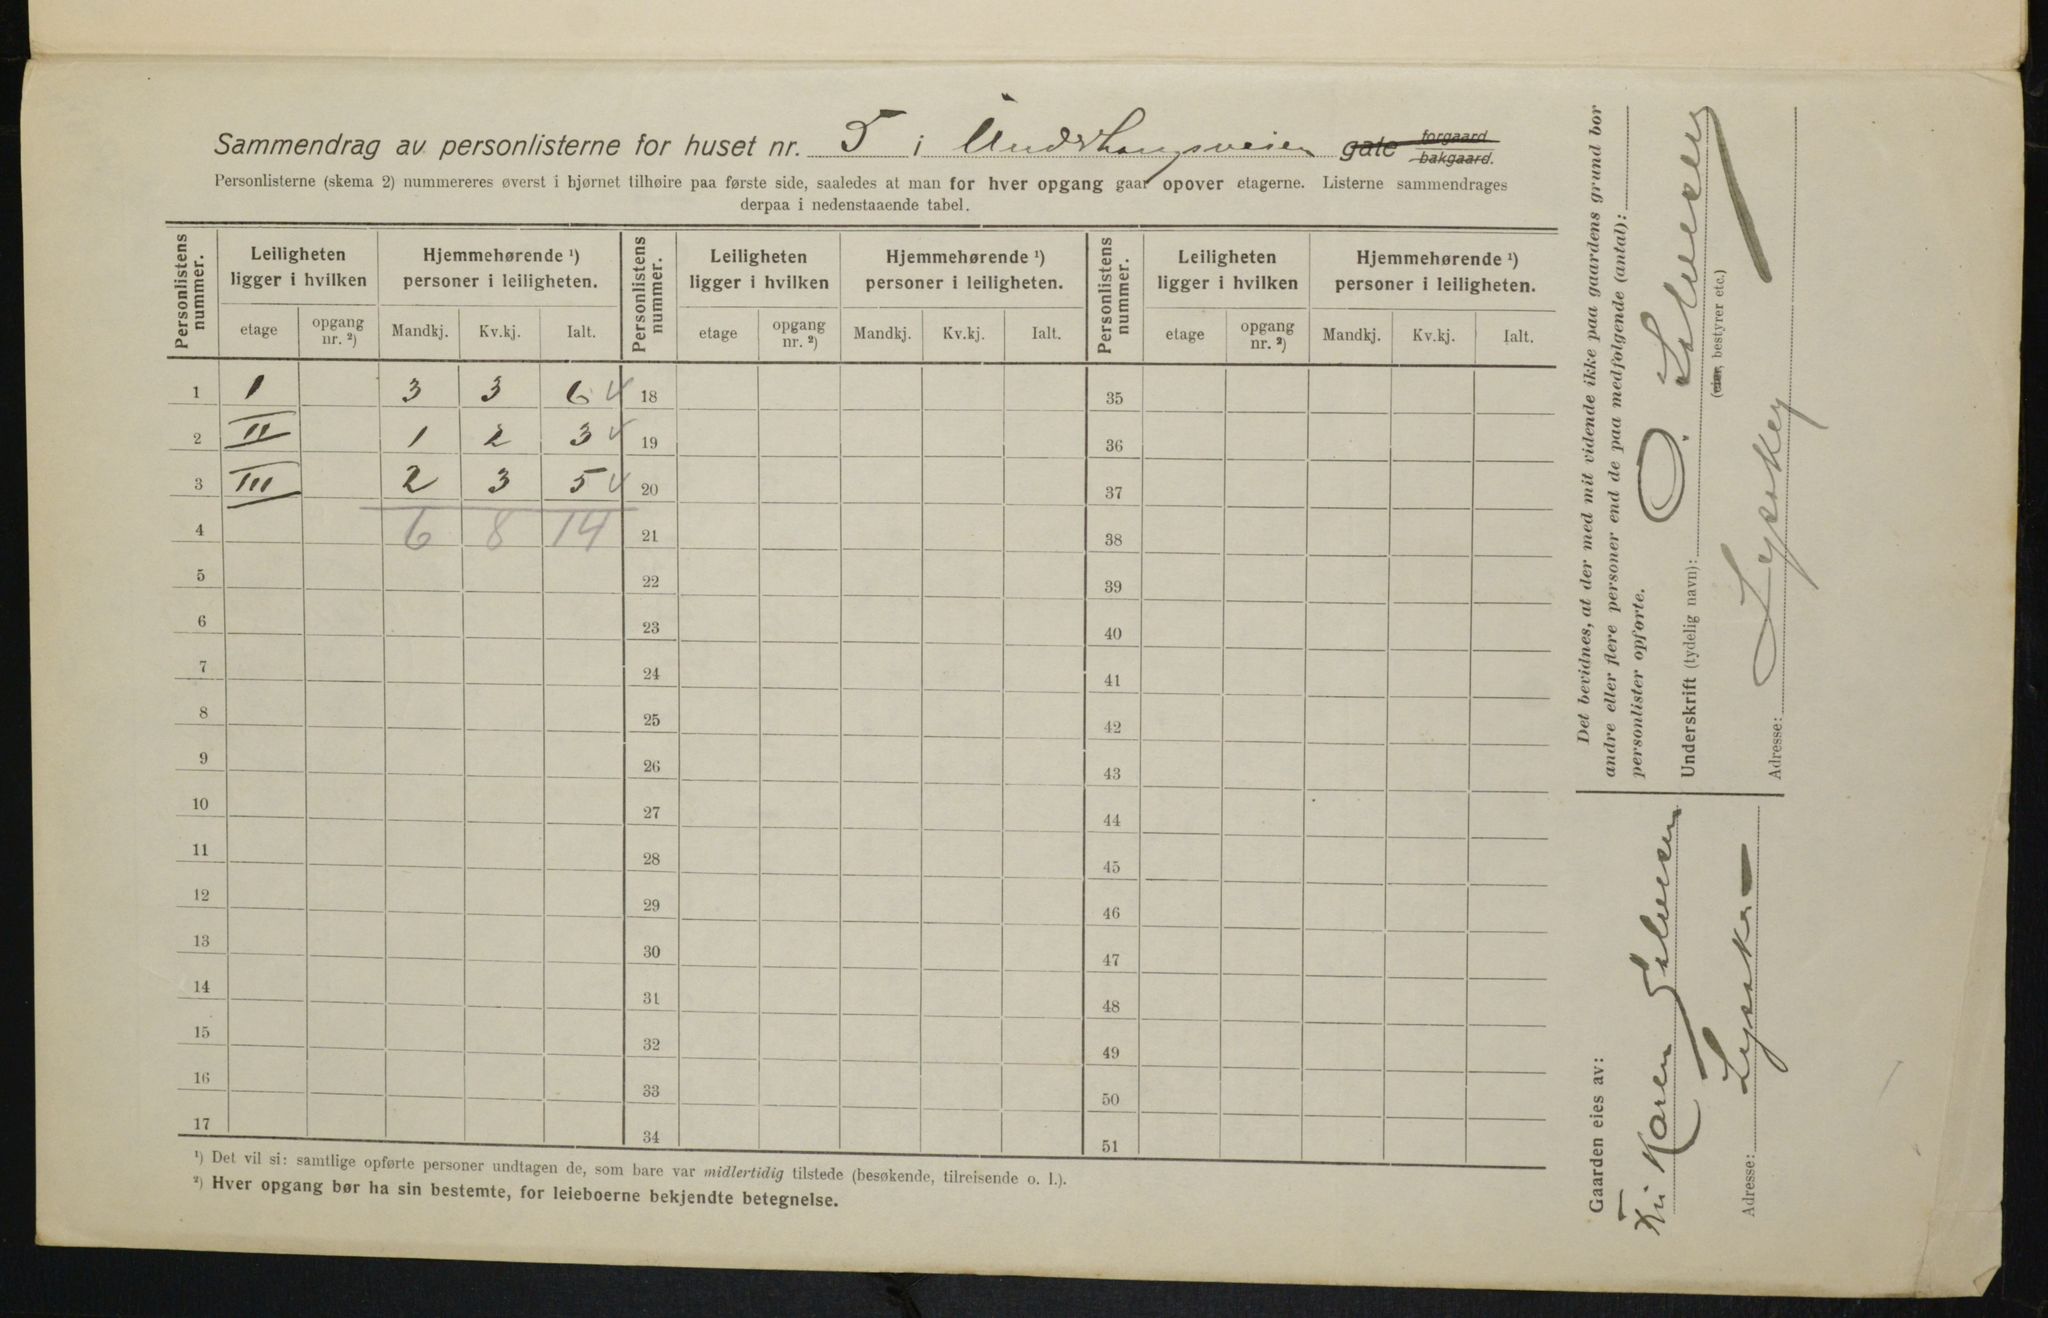 Sammendrag av personlisterne for huset nr. 5 i Underhaugsveien gate forgaard bakgaard.
Personlisterne (skema 2) nummereres øverst i bjørnet tilhøire paa første side, saaledes at man for hver opgang gaar opover etagerne. Listerne sammendrages
derpaa i nedenstaaende tabel.
Personlistens nummer. Leiligheten ligger i hvilken Hjemmehørende ¹) personer i leiligheten. Personlistens nummer. Leiligheten ligger i hvilken Hjemmehørende ¹) personer i leiligheten. Personlistens nummer. Leiligheten ligger i hvilken Hjemmehørende ¹) personer i leiligheten.
etage opgang nr. ²) Mandkj. Kv.kj. Ialt. etage opgang nr. ²) Mandkj. Kv.kj. Ialt. etage opgang nr. ²) Mandkj. Kv.kj. Ialt.
1 I 3 3 6 18 35
2 II 1 2 3 19 36
3 III 2 3 5 20 37
4 6 8 14 21 38
5 22 39
6 23 40
7 24 41
8 25 42
9 26 43
10 27 44
11 28 45
12 29 46
13 30 47
14 31 48
15 32 49
16 33 50
17 34 51
¹) Det vil si: samtlige opførte personer undtagen de, som bare var midlertidig tilstede (besøkende, tilreisende o. l.).
²) Hver opgang bør ha sin bestemte, for leieboerne bekjendte betegnelse.
Det bevidnes, at der med mit vidende ikke paa gaardens grund bor
andre eller flere personer end de paa medfølgende (antal):
personlister opførte.
Underskrift (tydelig navn):
(eier, bestyrer etc.)
Adresse: Lysaker
Gaarden eies av:
Karen
Adresse: Lysaker